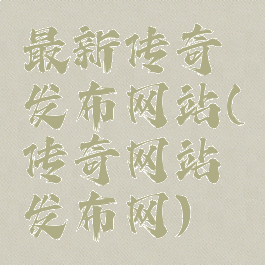 最新传奇
发布网站(
传奇网站
发布网)